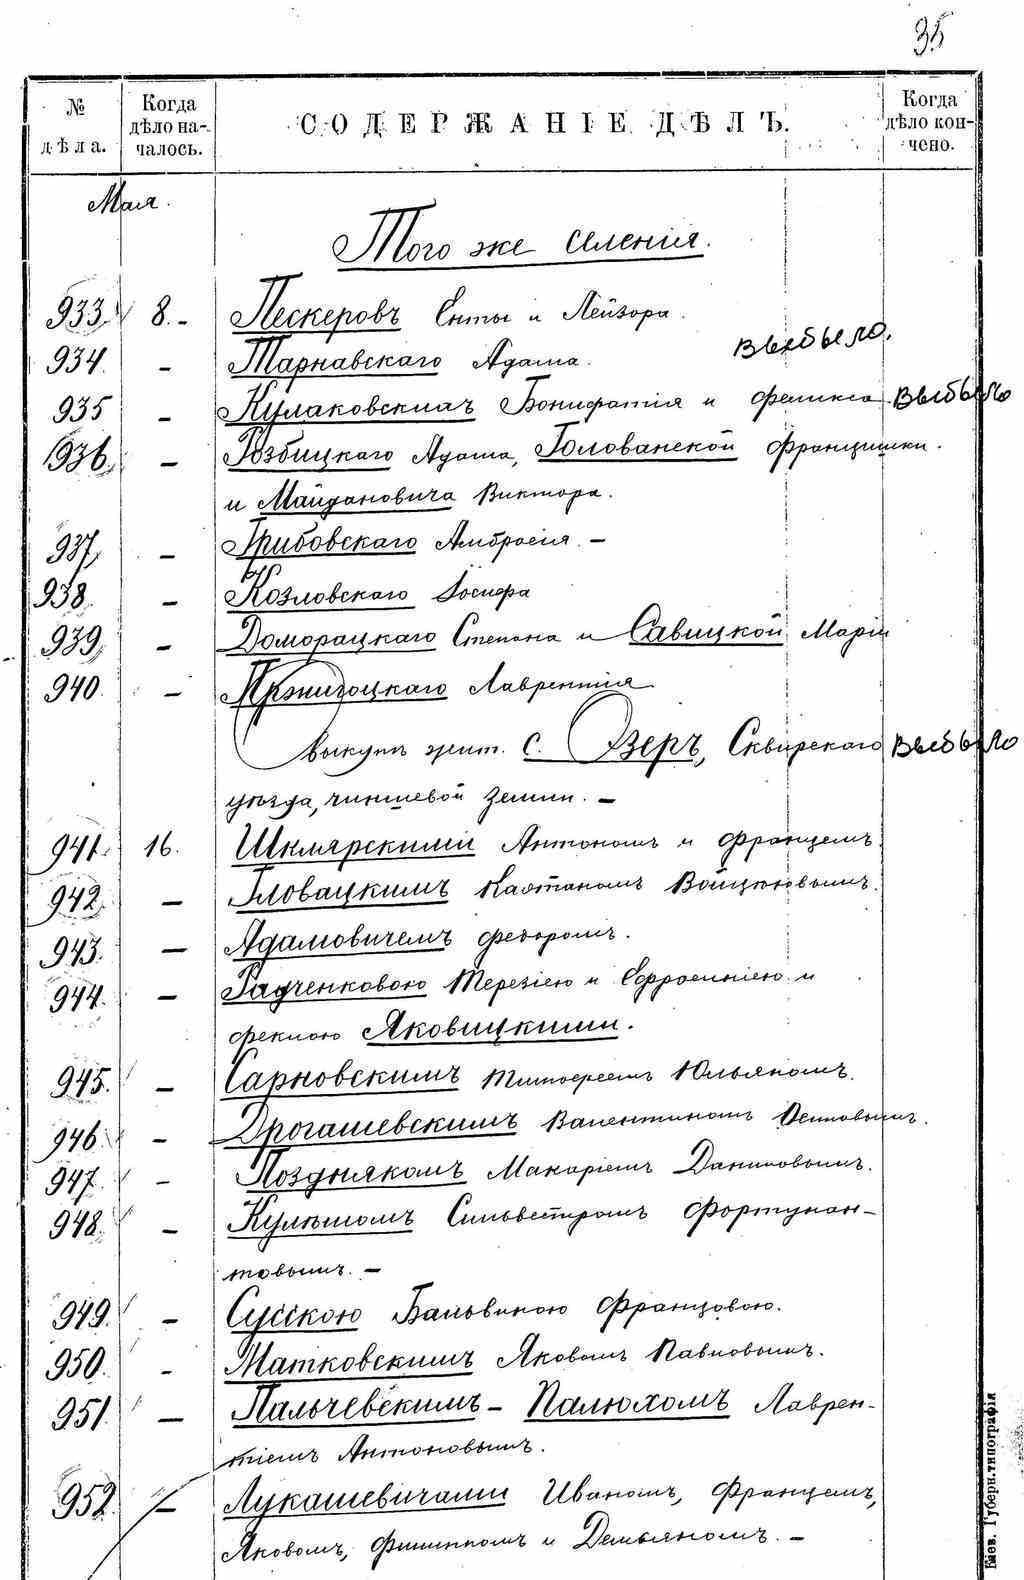 35
№ дѣла.
Когда дѣло началось.
СОДЕРЖАНІЕ ДѢЛЪ.
Когда дѣло кончено.
Мая.
Того же селенія.
933. 8. - Пескеровъ Енты и Лейзора.
934. - Тарнавскаго Адама. выбыло.
935 - Кулаковскихъ Бонифатія и Феликса выбыло
936. - Розбицкаго Адама, Голованской Францишки.
и Майдановича Виктора.
937. - Грибовскаго Амбросія. -
938. - Козловскаго Іосифа
939. - Доморацкаго Степана и Савицкой Маріи
940. - Пржигоцкаго Лаврентія
выкупъ жит. с. Озеръ, Сквирскаго выбыло
уѣзда, чиншевой земли. -
941. 16. Шклярскими Антономъ и Францемъ.
942. - Гловацкимъ Каэтаномъ Войцѣховымъ.
943. - Адамовичемъ Федоромъ.
944. - Радченковою Терезіею и Ефросиніею и
Феклою Яковицкими.
945. - Сарновскимъ Тимофеемъ Юльяномъ.
946. - Дрогашевскимъ Валентиномъ Осиповымъ.
947. - Поздняком​ъ Макаріемъ Даниловымъ.
948. - Кулѣшомъ Сильвестромъ Фортунан-
товымъ. -
949. - Сусскою Бальвиною Францовою.
950. - Матковскимъ Яковомъ Павловымъ.
951. - Пальчевскимъ - Палюхомъ Лаврен-
тіемъ Антоновымъ.
952. - Лукашевичами Иваномъ, Францемъ,
Яковомъ, Филиппомъ и Демьяномъ. -
Кіев. Губерн. типографія